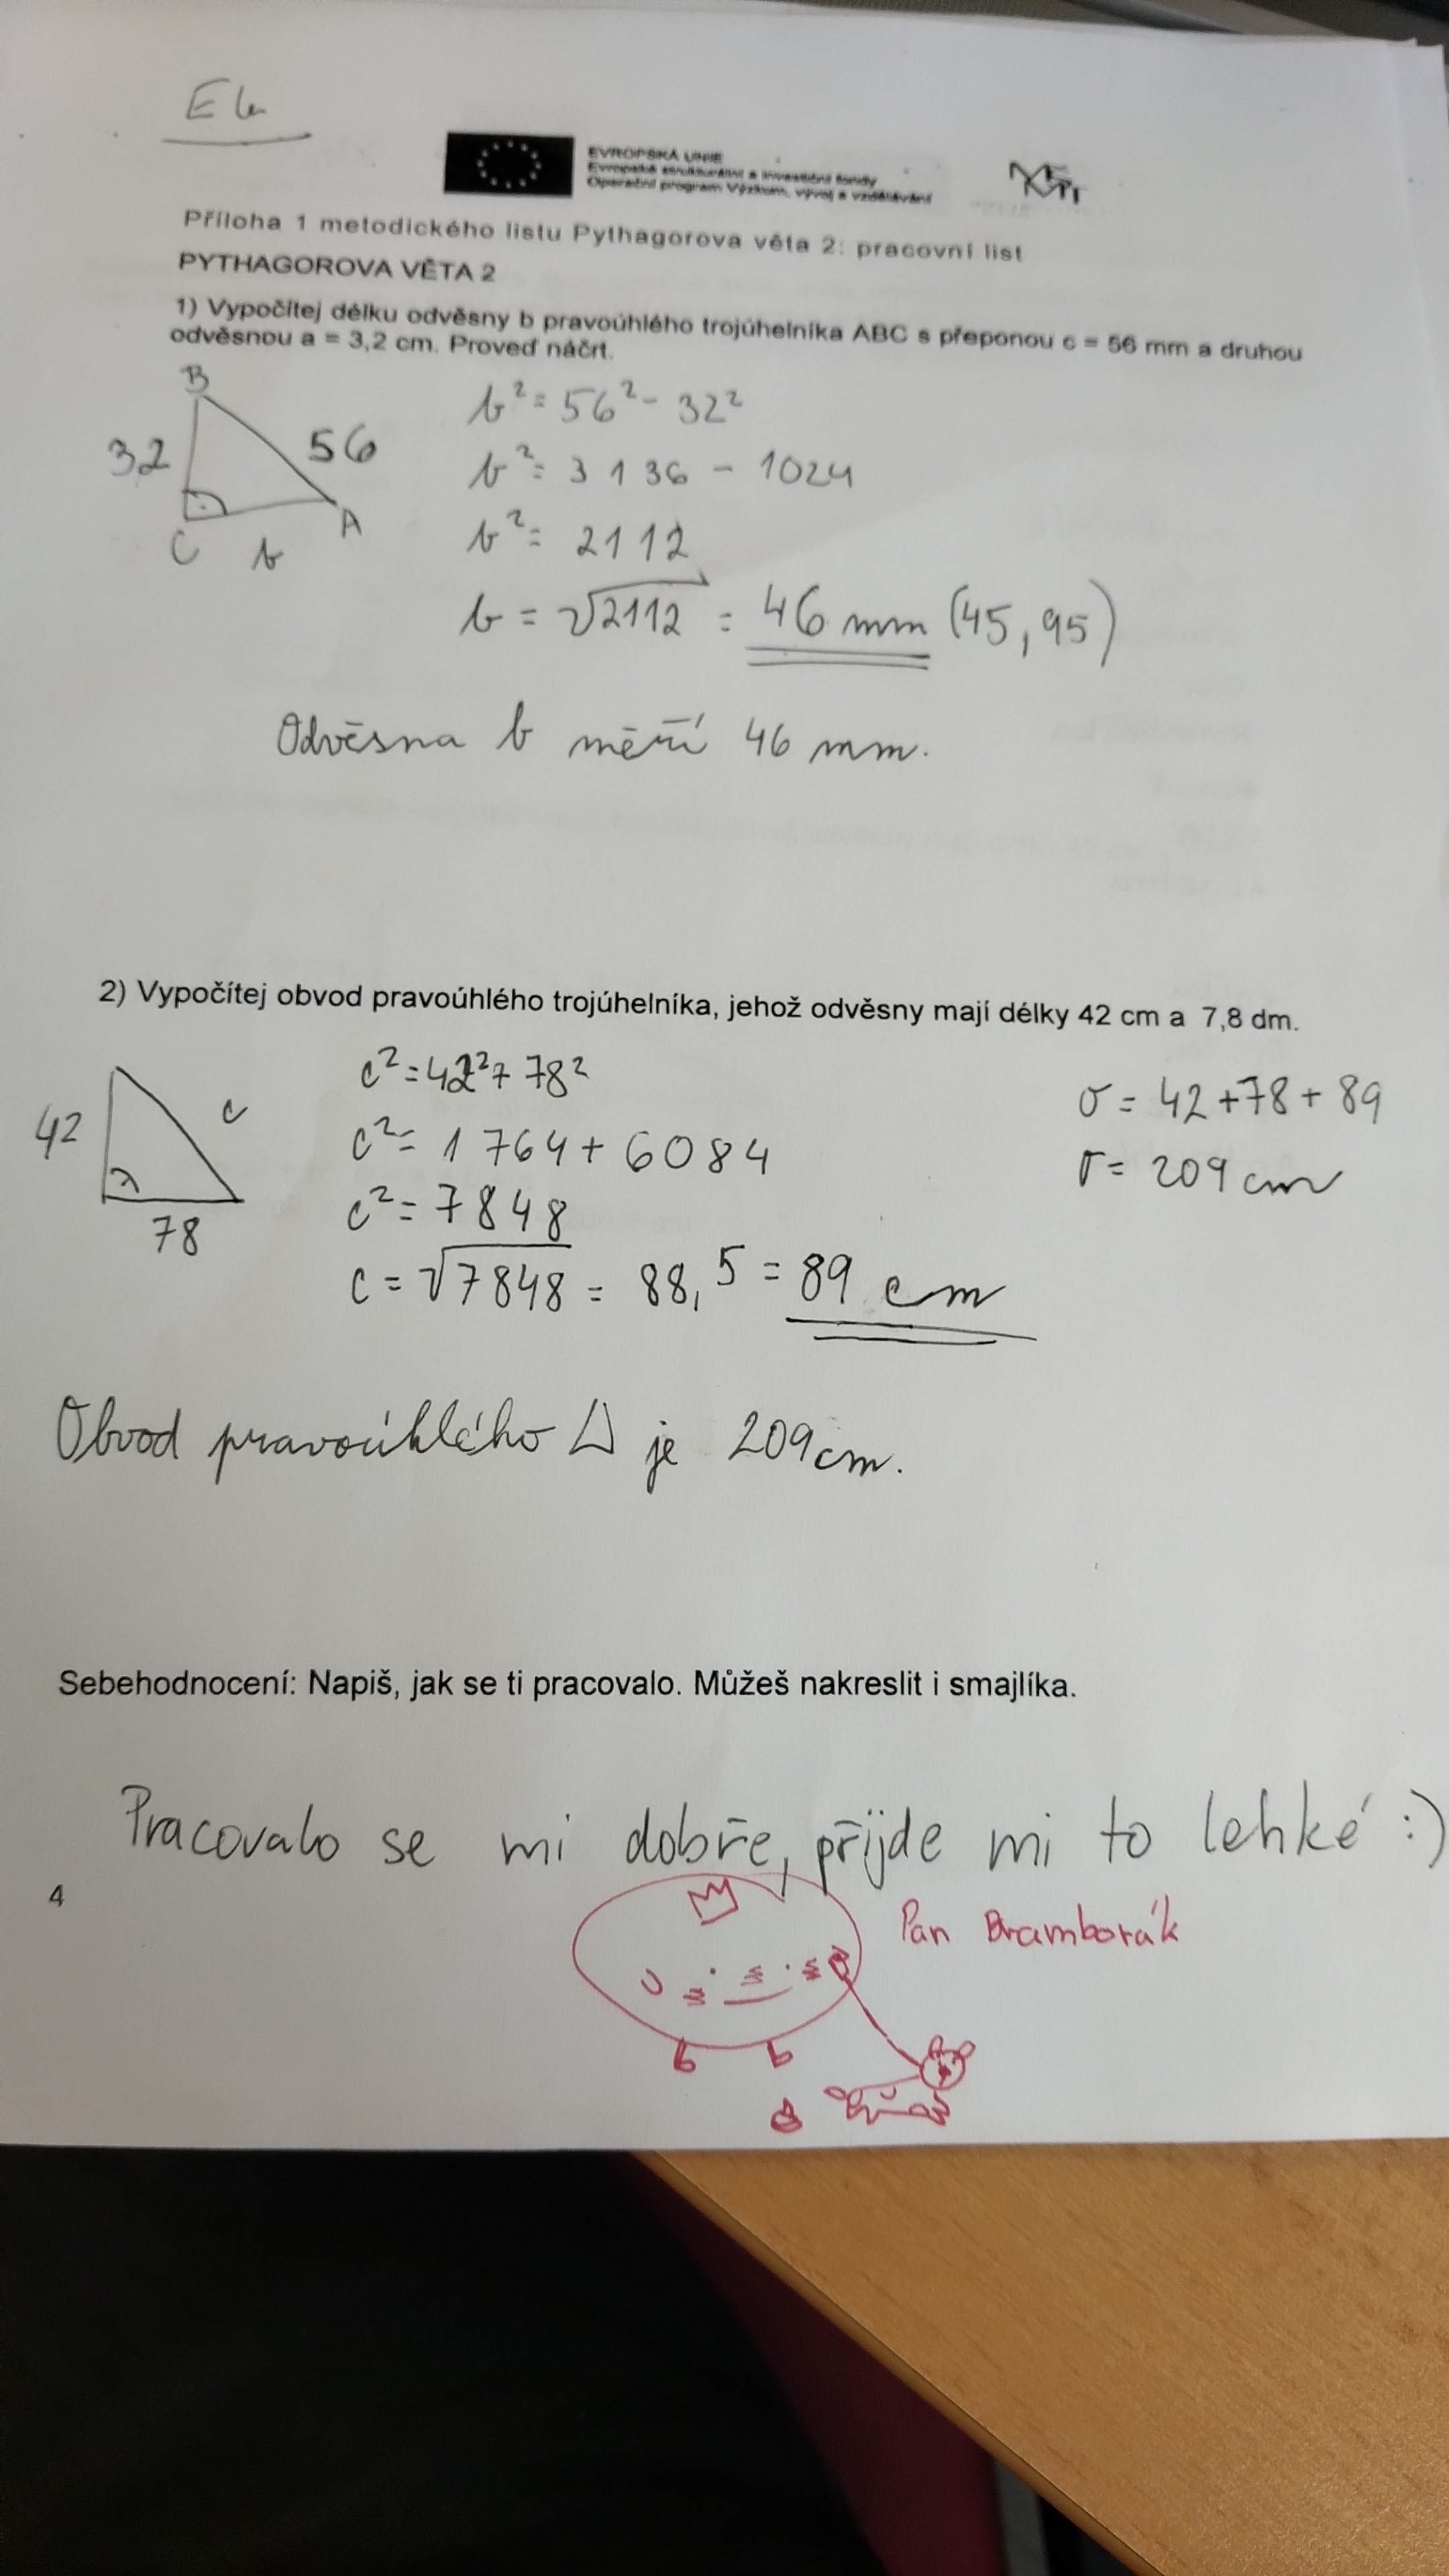 EVROPSKÁ UNIE
Evropské strukturální a investiční fondy
Operační program Výzkum, vývoj a vzdělávání
Příloha 1 metodického listu Pythagorova věta 2: pracovní list
PYTHAGOROVA VĚTA 2
1) Vypočítej délku odvěsny b pravoúhlého trojúhelníka ABC s přeponou c = 56 mm a druhou
odvěsnou a = 3,2 cm. Proveď náčrt.
B
32
56
C
b
A
b² = 56² - 32²
b² = 3 136 - 1024
b² = 2112
b = √2112 = 46 mm (45,95)
Odvěsna b měří 46 mm.
2) Vypočítej obvod pravoúhlého trojúhelníka, jehož odvěsny mají délky 42 cm a 7,8 dm.
42
c
78
c² = 42² + 78²
c² = 1 764 + 6084
c² = 7848
c = √7848 = 88,5 = 89 cm
σ = 42 + 78 + 89
σ = 209 cm
Obvod pravoúhlého △ je 209 cm.
Sebehodnocení: Napiš, jak se ti pracovalo. Můžeš nakreslit i smajlíka.
Pracovalo se mi dobře, přijde mi to lehké :)
4
Pan Bramborák